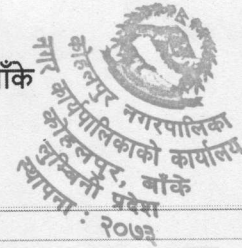 ाँके
कोहलपुर नगरपालिका
नगर कार्यपालिकाको कार्यालय
कोहलपुर, बाँके
लुम्बिनी प्रदेश
स्थापना : २०७३